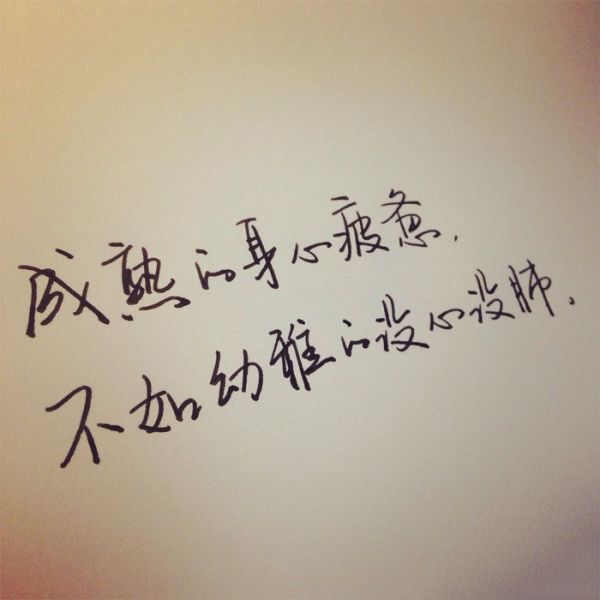 成熟的身心疲惫.
不如幼雅的没心没肺.